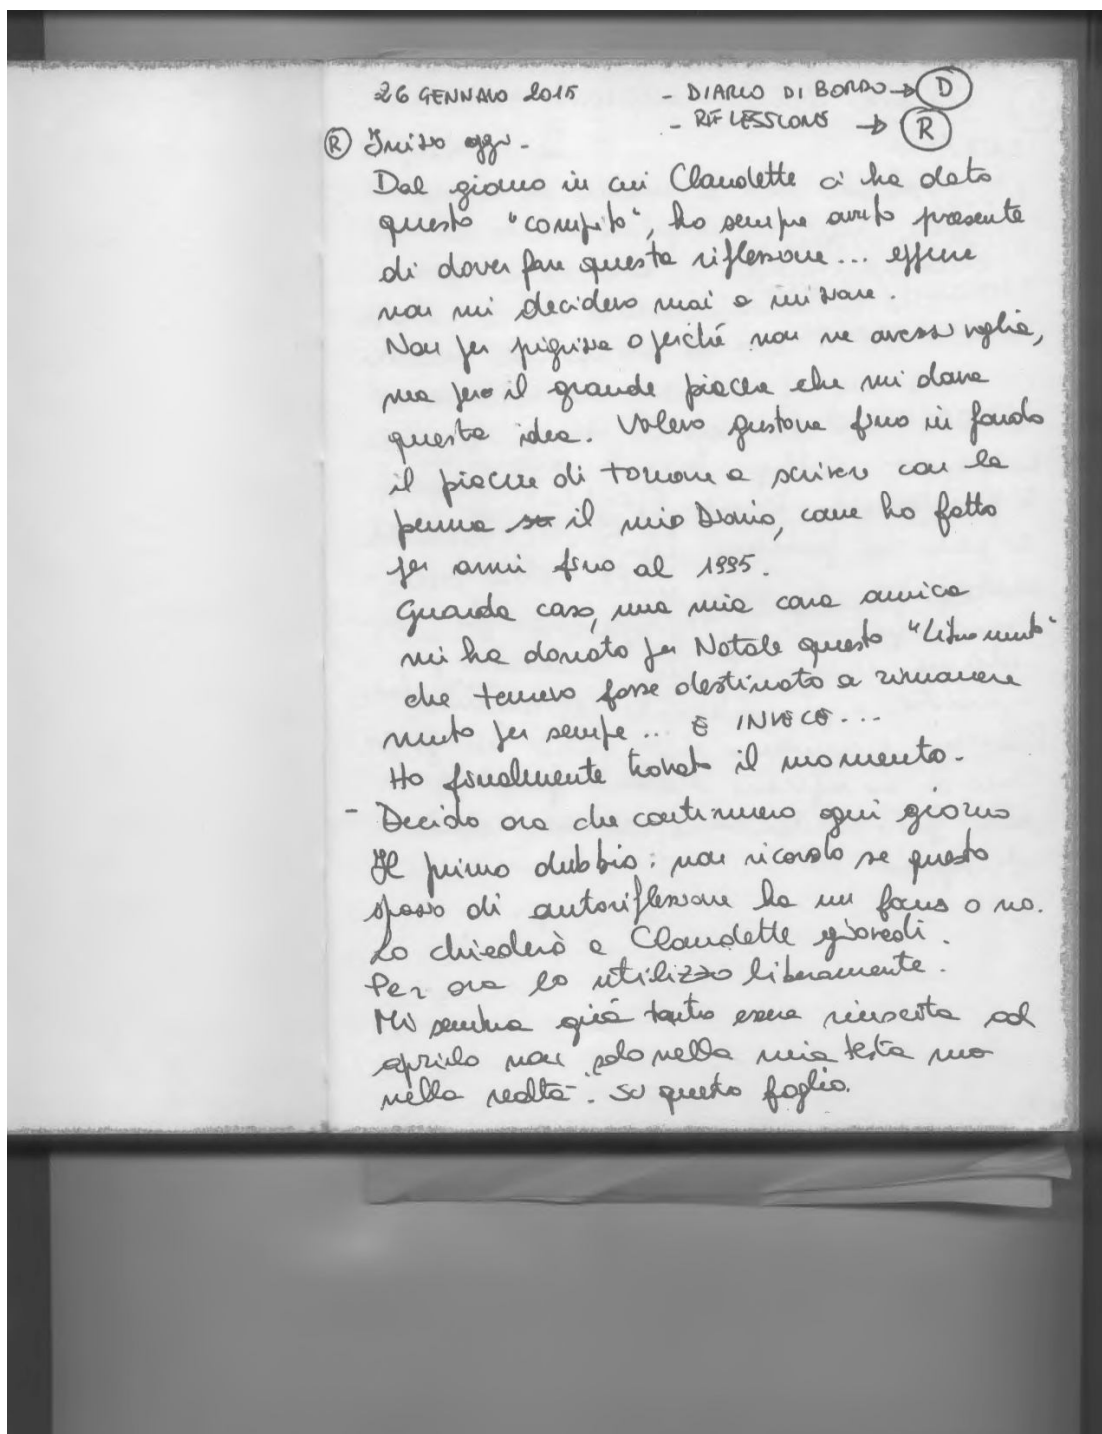 26 GENNAIO 2015 - DIARIO DI BORDO → D
- RIFLESSIONE → R
R Inizio oggi -
Dal giorno in cui Claudette ci ha dato
questo "compito", ho sempre avuto presente
di dover fare questa riflessione... eppure
non mi decidevo mai a iniziare.
Non per pigrizia o perché non ne avessi voglia,
ma per il grande piacere che mi dava
questa idea. Volevo gustare fino in fondo
il piacere di tornare a scrivere con la
penna il mio Diario, come ho fatto
per anni fino al 1995.
Guarda caso, una mia cara amica
mi ha donato per Natale questo "Libro muto"
che temevo fosse destinato a rimanere
muto per sempre.. E INVECE...
Ho finalmente trovato il momento.
- Decido ora che continuerò ogni giorno
Il primo dubbio: non ricordo se questo
spazio di autoriflessione ha un focus o no.
Lo chiederò a Claudette giovedì.
Per ora lo utilizzo liberamente.
Mi sembra già tanto essere riuscita ad
aprirlo non solo nella mia testa ma
nella realtà. Su questo foglio.